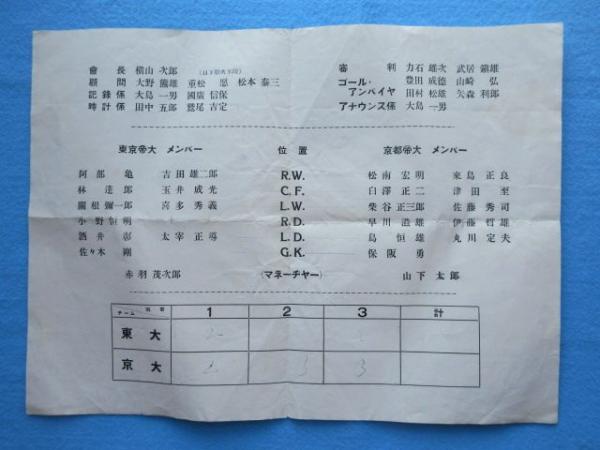 會長 横山次郎
顧問 大野熊雄 重松 松本泰三
記錄係 大島一男 國廣信保
時計係 田中五郎 鷲尾吉定
審判 力石雄次 武居鎭雄
ゴール・アンパイヤ 豊田成德 山崎弘
田村松雄 矢森利郎
アナウンス係 大島一男
東京帝大 メンバー 位置 京都帝大 メンバー
阿部亀 吉田雄二郎 R.W. 松南宏明 來島正良
林達郎 玉井成光 C.F. 白澤正二 津田至
關根彌一郎 喜多秀義 L.W. 柴谷正三郎 佐藤秀司
小野恒明 R.D. 早川溢雄 伊藤哲雄
酒井彰 太宰正導 L.D. 島恒雄 丸川定夫
佐々木剛 G.K. 保阪勇
赤羽茂次郎 (マネーチャー) 山下太郎
チーム 1 2 3 計
東大 2
京大 2 3 3